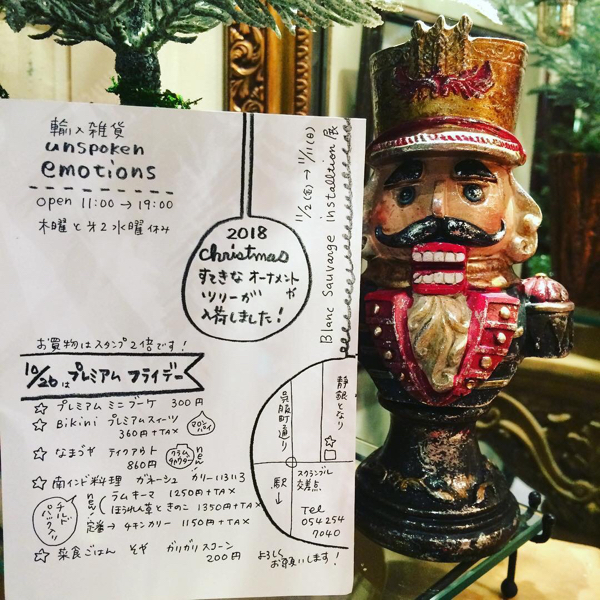 輸入雑貨
unspoken
emotions
open 11:00→19:00
木曜と第2水曜休み
Blanc Sauvarge installtion 展
11/2(金)→11/11(日)
2018
Christmas
すてきな オーナメントや
ツリーが
入荷しました!
お買物はスタンプ2倍です!
10/26は プレミアム フライデー
☆ プレミアム ミニブーケ 300円
☆ Bikini プレミアムスイーツ
360円+TAX
マロンパイ
☆ なまづや テイクアウト
860円
クラムチャウダー
new!
☆ 南インド料理 ガネーシュ カリー113113
チルドパック入り
new! ラムキーマ 1250円+TAX
ほうれん草ときのこ 1350円+TAX
定番→ チキンカリー 1150円+TAX
☆ 菜食ごはん そや ガリガリスコーン
200円
よろしく
お願いします!
呉服町通り
静銀となり
☆
スクランブル
交差点
駅↓
Tel
054 254
7040